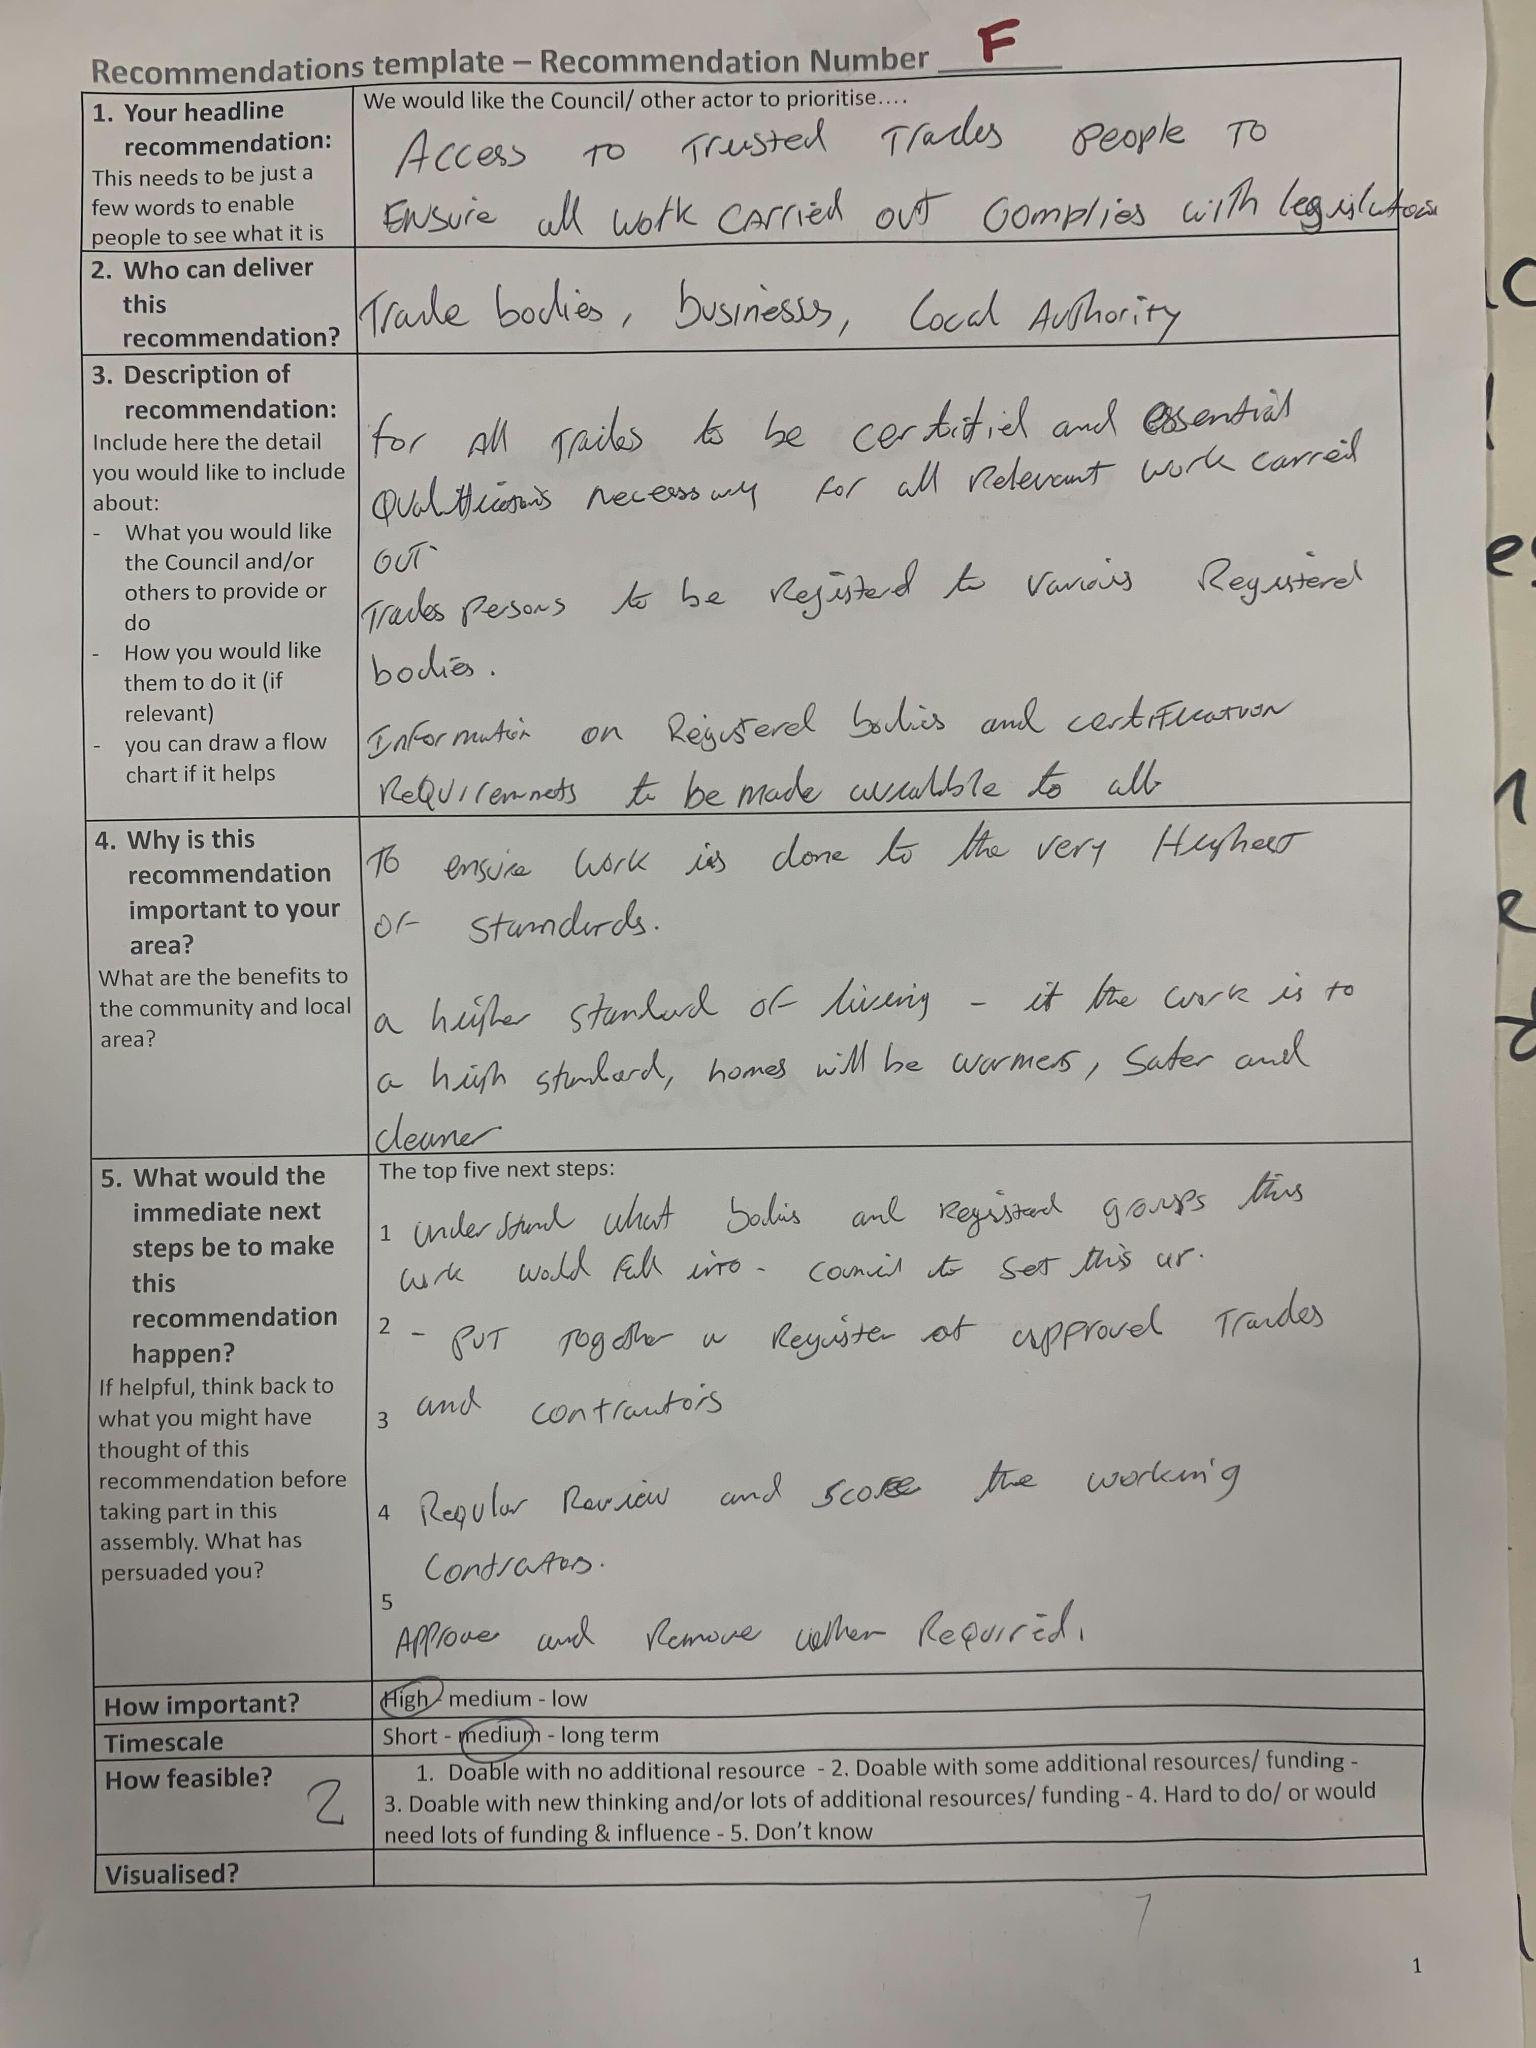 Recommendations template – Recommendation Number F
1. Your headline recommendation:
This needs to be just a few words to enable people to see what it is
We would like the Council/ other actor to prioritise....
Access to Trusted Trades People to
Ensure all work carried out complies with legislation
2. Who can deliver this recommendation?
Trade bodies, businesses, Local Authority
3. Description of recommendation:
Include here the detail you would like to include about:
- What you would like the Council and/or others to provide or do
- How you would like them to do it (if relevant)
- you can draw a flow chart if it helps
for All Trades to be certified and essential
Qualifications necessary for all Relevant work carried
out
Trades persons to be Registerd to various Registered
bodies.
Information on Registered bodies and certification
Requirements to be made available to all
4. Why is this recommendation important to your area?
What are the benefits to the community and local area?
To ensure work is done to the very Highest
of standards.
a higher standard of living - if the work is to
a high standard, homes will be warmer, safer and
cleaner
5. What would the immediate next steps be to make this recommendation happen?
If helpful, think back to what you might have thought of this recommendation before taking part in this assembly. What has persuaded you?
The top five next steps:
1 understand what bodies and registered groups this
work would fall into - council to set this up.
2 - Put together a Register of approved Trades
3 and contractors
4 Regular Review and score the working
contractors.
5
Approve and Remove when Required.
How important?
High - medium - low
Timescale
Short - medium - long term
How feasible? 2
1. Doable with no additional resource - 2. Doable with some additional resources/ funding -
3. Doable with new thinking and/or lots of additional resources/ funding - 4. Hard to do/ or would
need lots of funding & influence - 5. Don't know
Visualised?
1